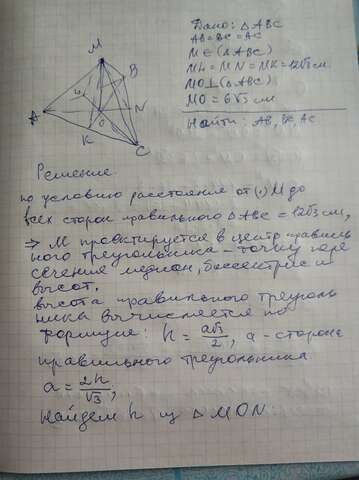 Дано: △ABC
AB=BC=AC
M∉(△ABC)
ML=MN=MK=12√3 см
MO⊥(△ABC)
MO=6√3 см
Найти: AB, BC, AC
M
B
A
N
O
K
C
Решение.
по условию расстояние от (·) M до
всех сторон правильного △ABC = 12√3 см,
⇒ M проектируется в центр правиль
ного треугольника - точку пере
сечения медиан, биссектрис и
высот.
высота правильного треуголь
ника вычисляется по
формуле: h = a√3/2, a - сторона
правильного треугольника
a = 2h/√3;
найдем h из △MON: